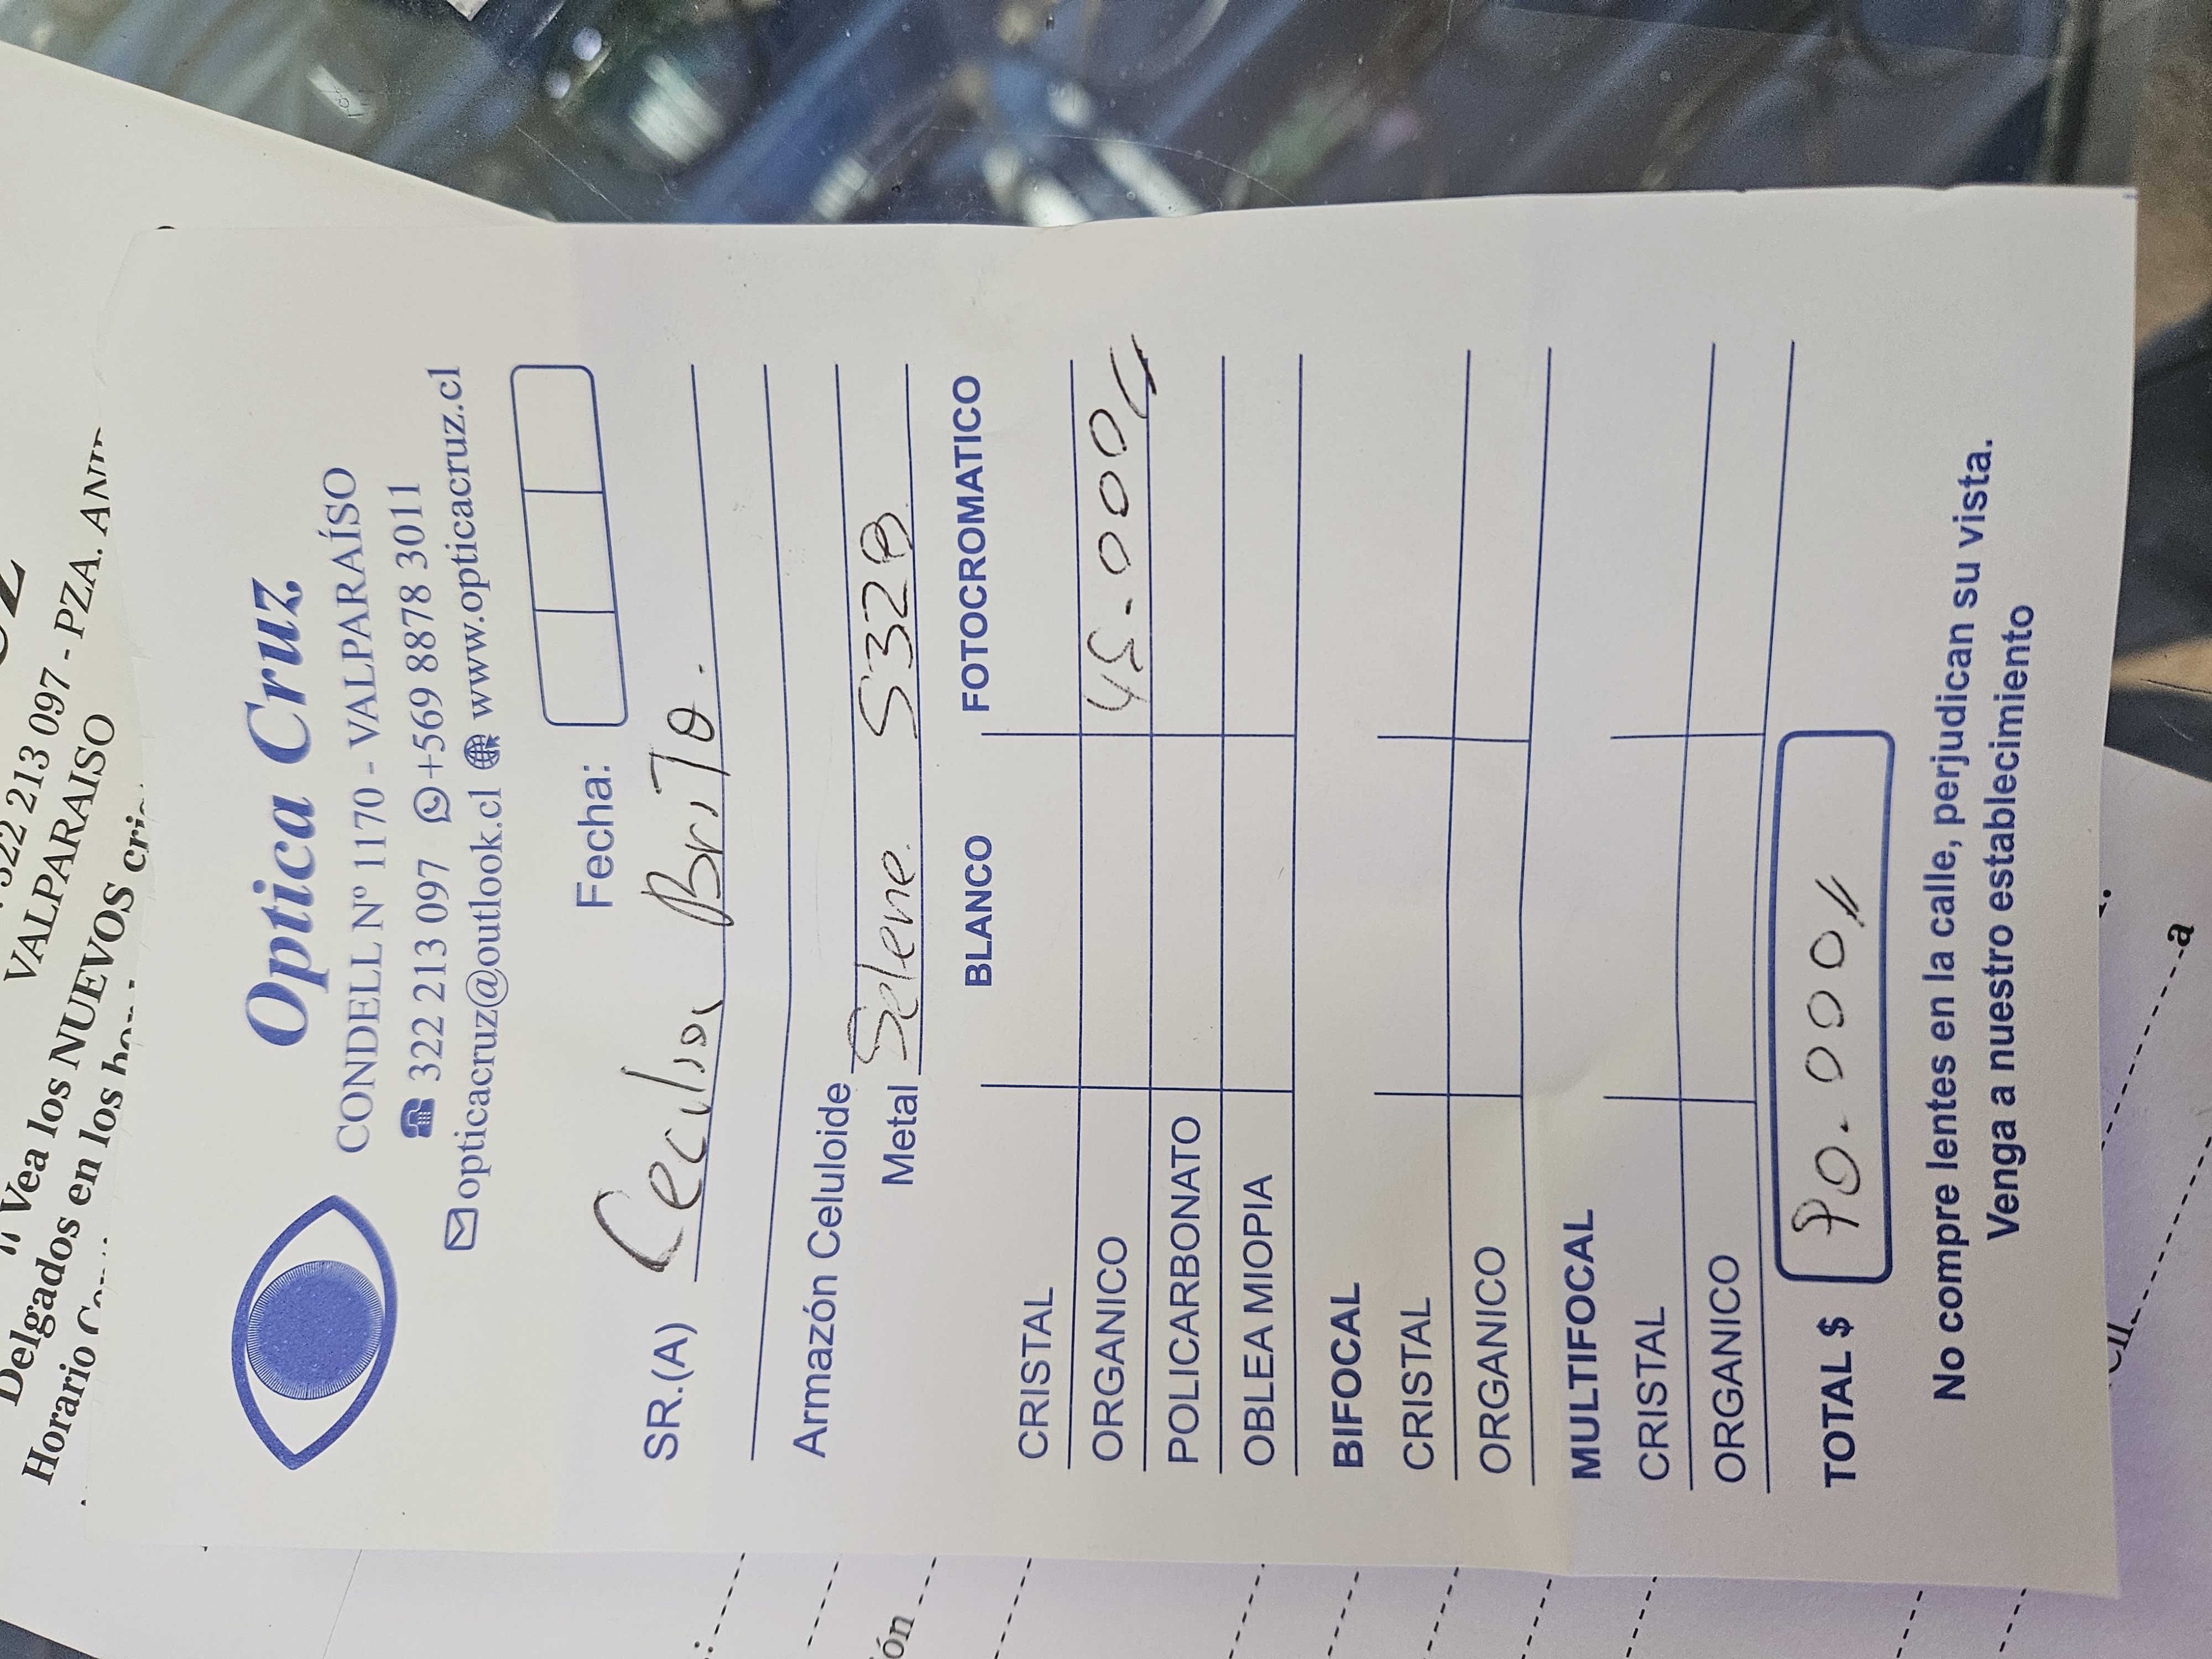 322 213 097 - PZA. ANI
VALPARAISO
¡¡ Vea los NUEVOS
Delgados en los
Horario
Optica Cruz
CONDELL Nº 1170 - VALPARAÍSO
322 213 097 +569 8878 3011
opticacruz@outlook.cl www.opticacruz.cl
Fecha:
SR.(A) Cecilia Brito.
Armazón Celuloide
Metal Selene. S328
BLANCO FOTOCROMATICO
CRISTAL
ORGANICO 45.000//
POLICARBONATO
OBLEA MIOPIA
BIFOCAL
CRISTAL
ORGANICO
MULTIFOCAL
CRISTAL
ORGANICO
TOTAL $ 90.000//
No compre lentes en la calle, perjudican su vista.
Venga a nuestro establecimiento
ón
a